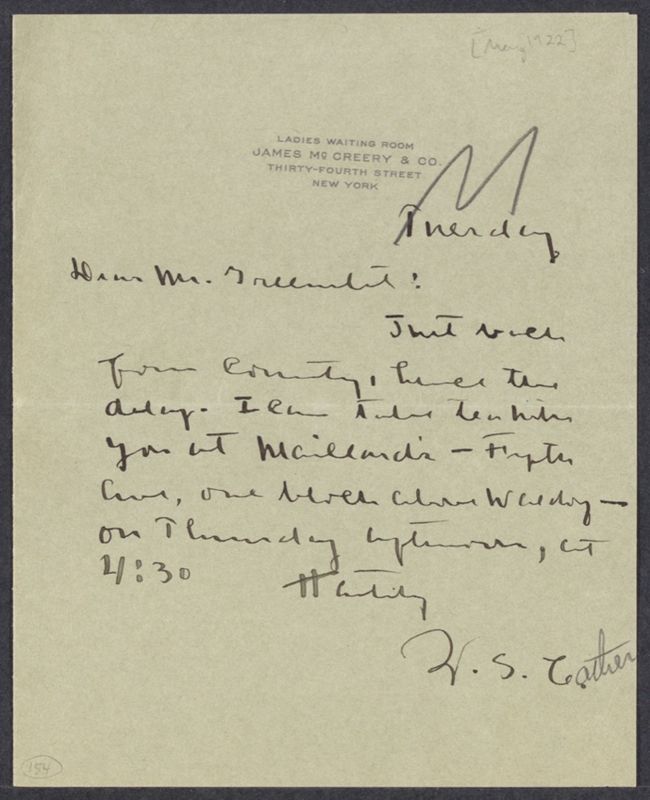 [May 1922]
LADIES WAITING ROOM
JAMES Mc CREERY & CO.
THIRTY-FOURTH STREET
NEW YORK
Tuesday
Dear Mr. Greenslet:
Just back
from Country, hence the
delay. I can take tea with
you at Maillard's — Fifth
Ave, one block above Waldorf —
on Thursday afternoon, at
4:30
Heartily
W. S. Cather
154